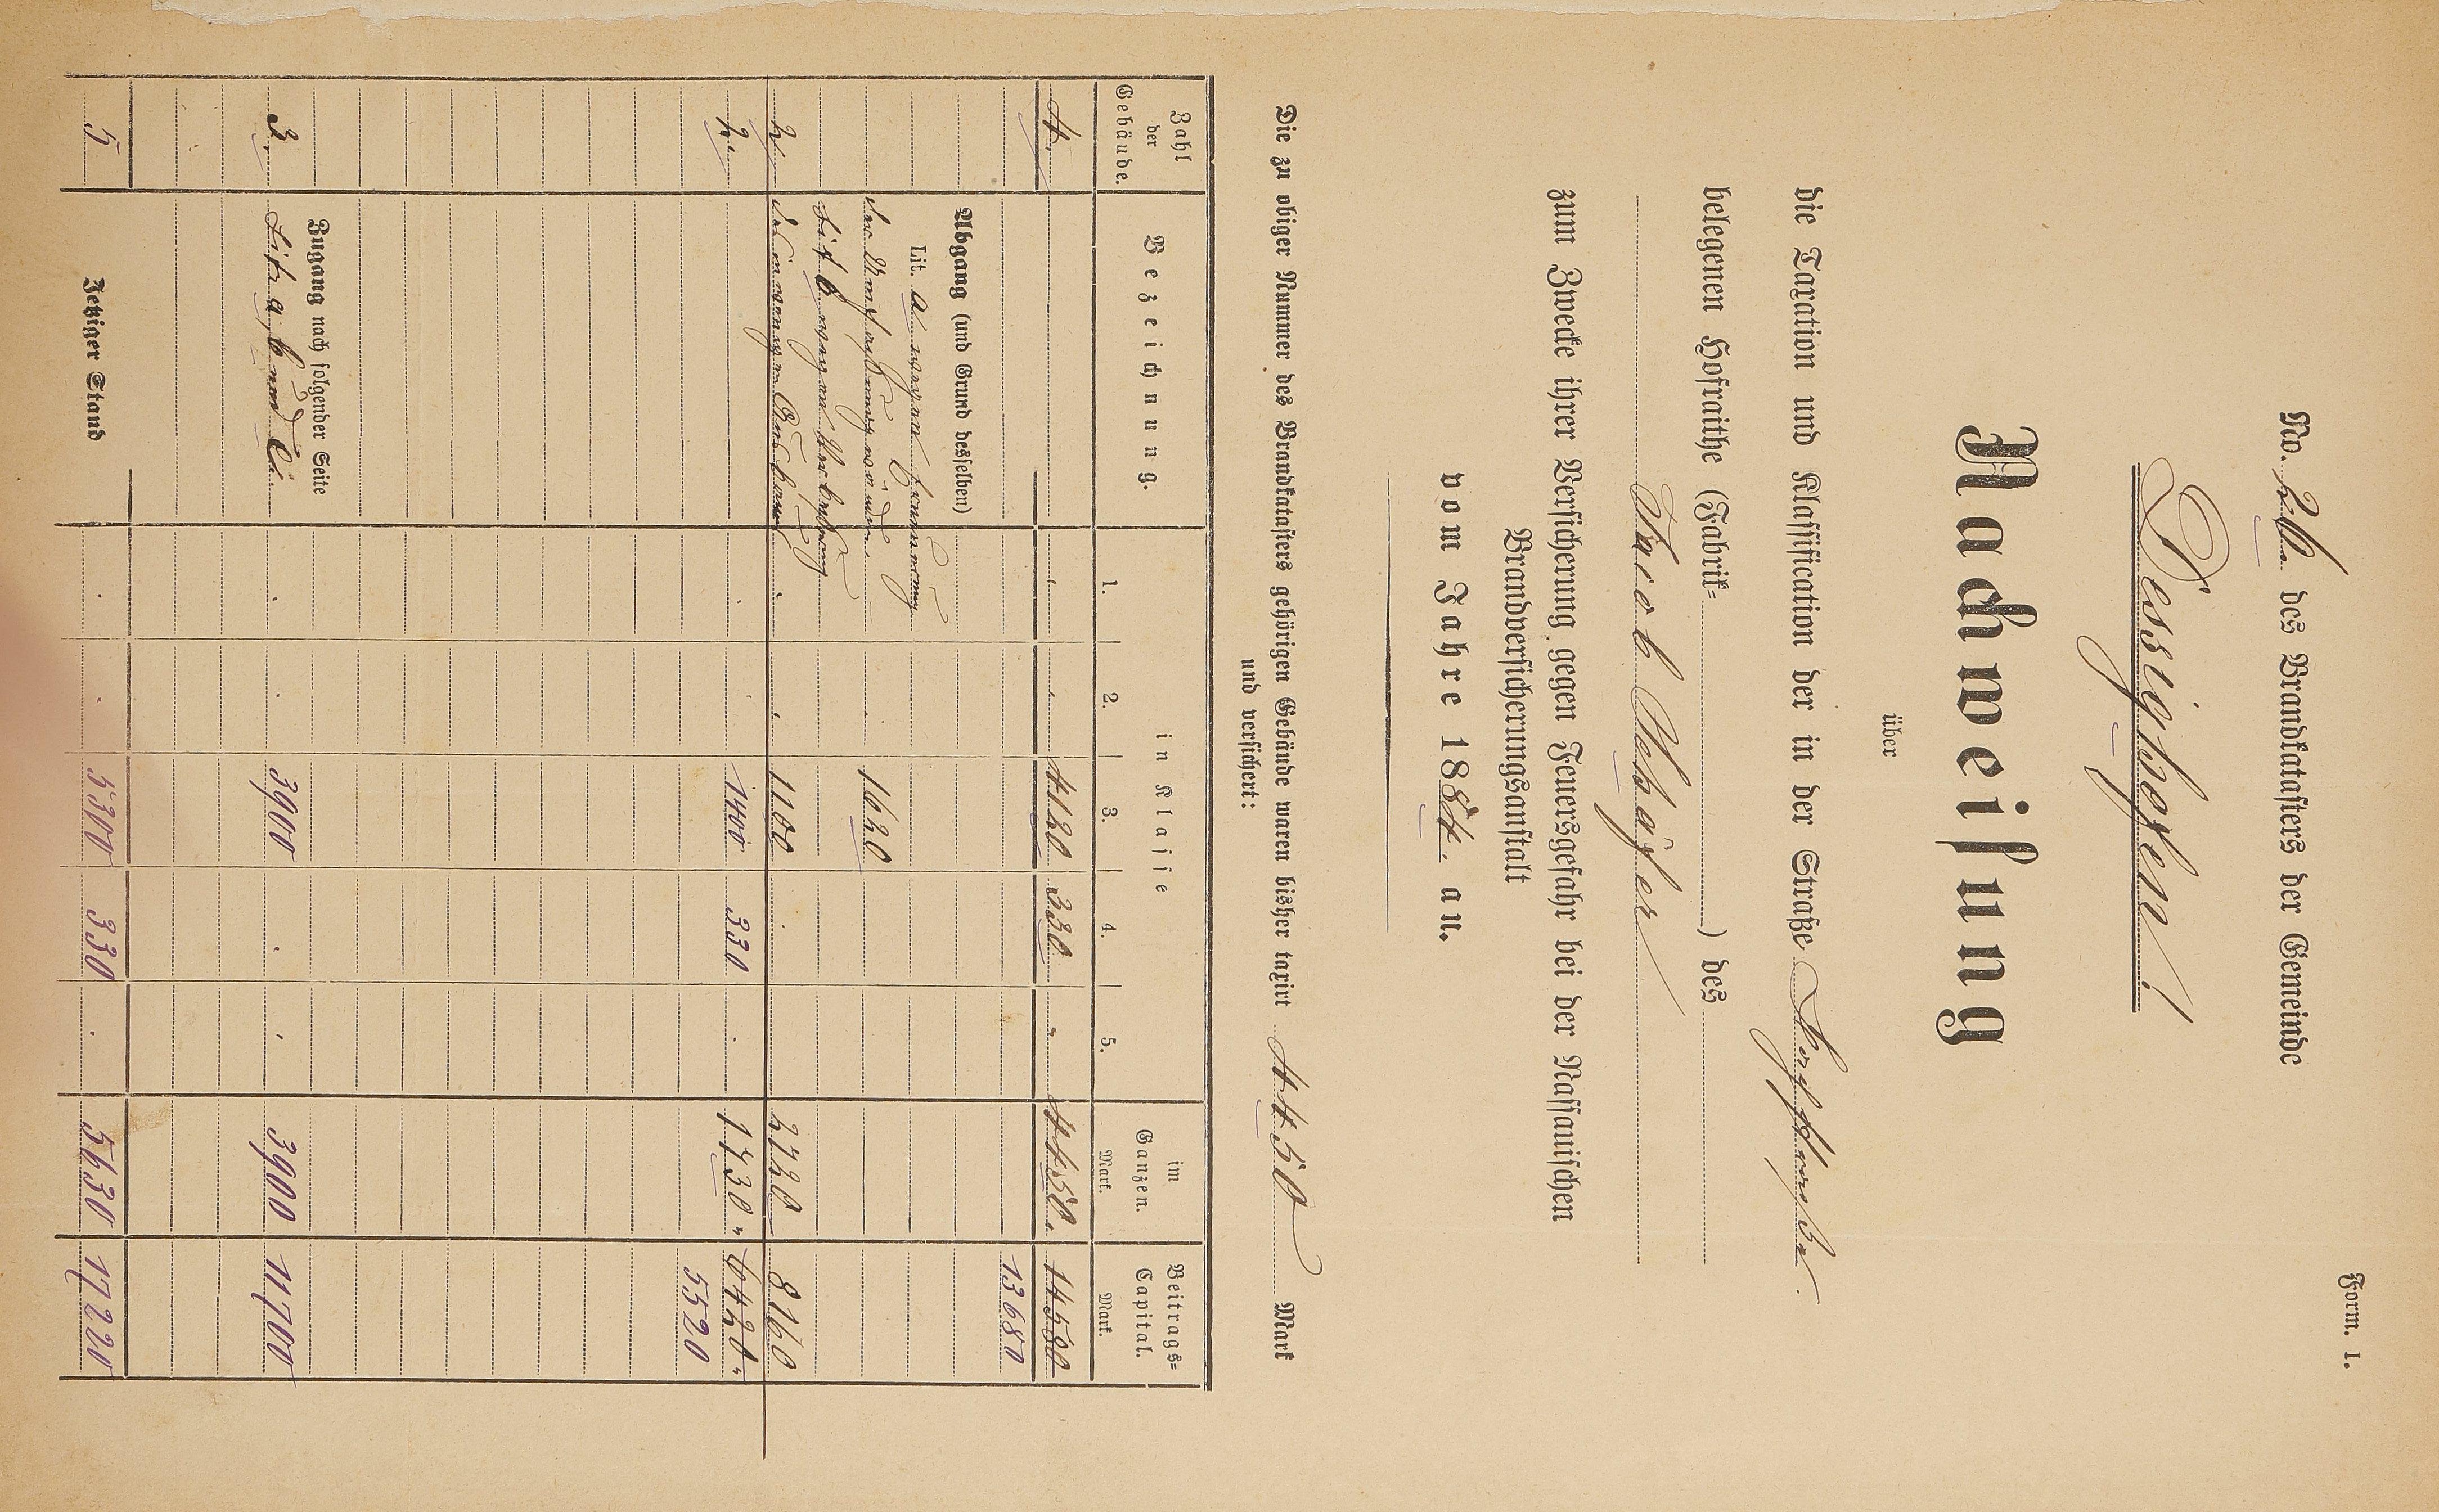 Form. I.
No. 26. des Brandkatasters der Gemeinde
Dessighofen!
Nachweisung
über
die Taxation und Klassification der in der Straße
belegenen Hofraithe (Fabrik= ) des
Jacob Schäfer
zum Zwecke ihrer Versicherung gegen Feuersgefahr bei der Nassauischen
Brandversicherungsanstalt
vom Jahre 1884. an.
Die zu obiger Nummer des Brandkatasters gehörigen Gebäude waren bisher taxirt 4450 Mark
und versichert:
Zahl der Gebäude. Bezeichnung. in Klasse im Ganzen. Beitrags=Capital.
1. 2. 3. 4. 5. Mark. Mark.
4. 4120 330 " 4450. 14580
13680
Abgang (und Grund desselben)
Lit. a wegen
1620
Lit b wegen
2 1100 2720 8160
2. 1400 330 1730 " 6420 "
5520
Zugang nach folgender Seite
3. Lit. a, b und c. 3900 3900 11700
5 Jetziger Stand 5300 330 5630 17220